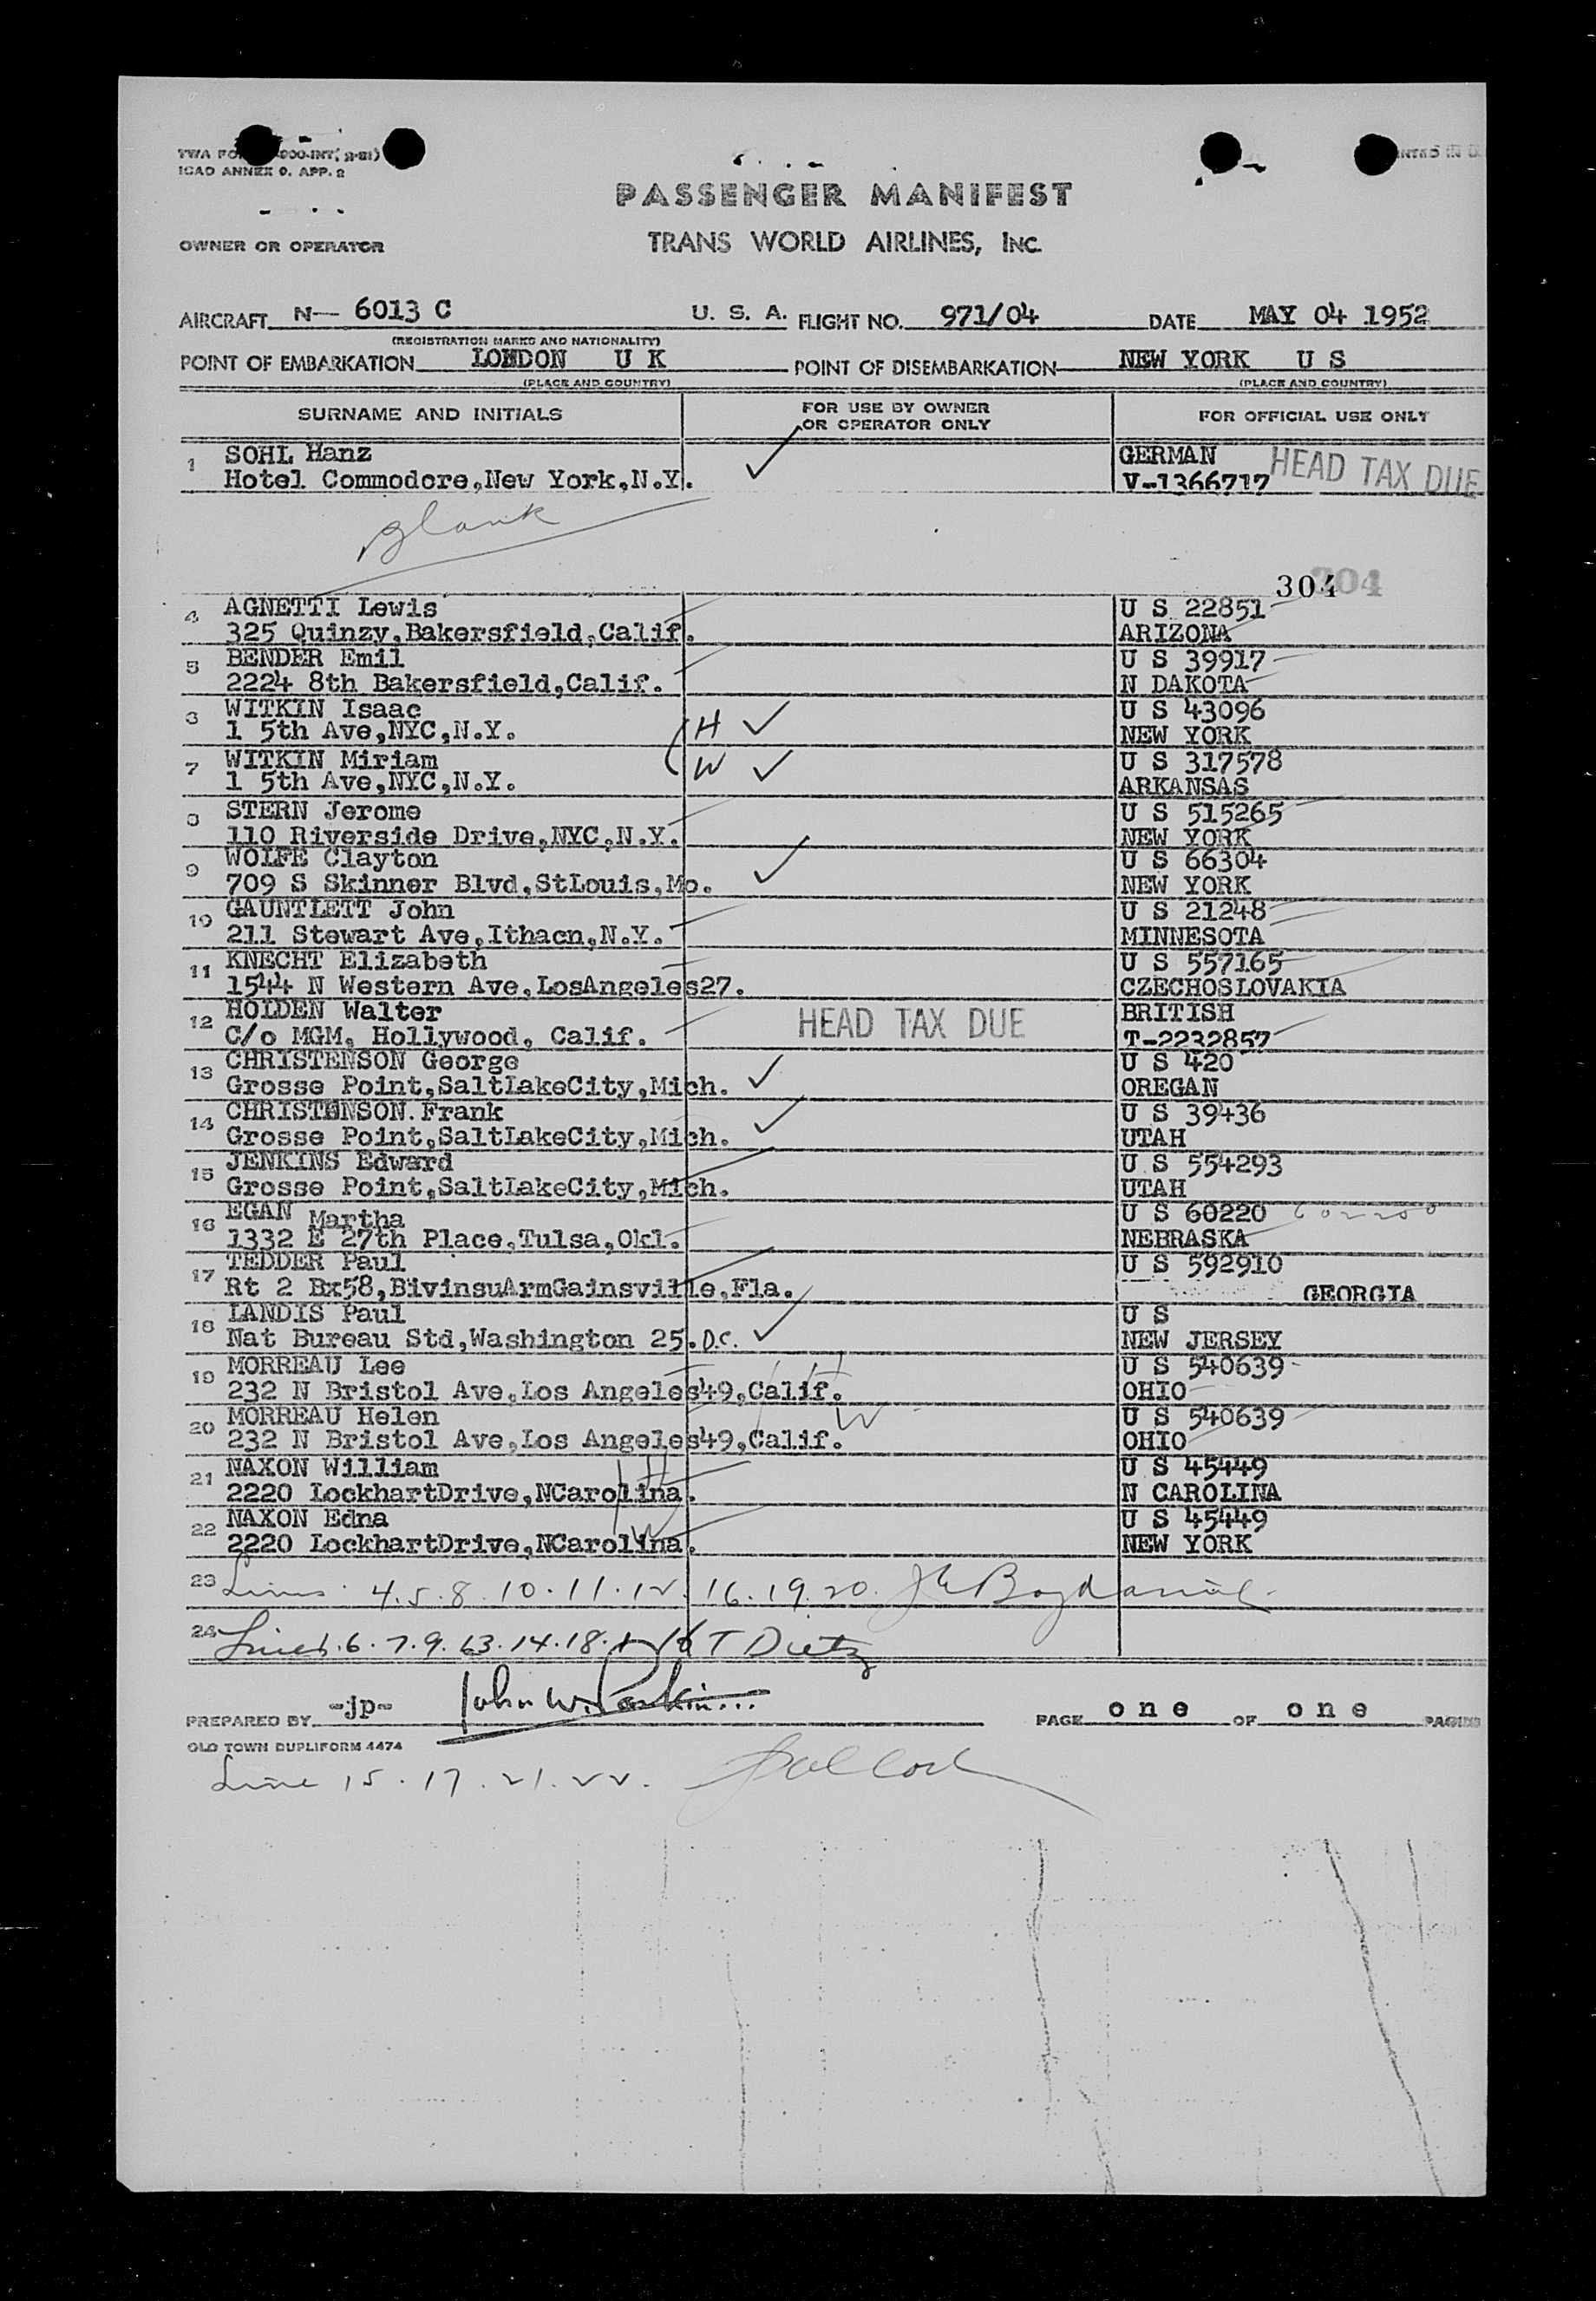 ICAO ANNEX 9. APP. 2
PASSENGER MANIFEST
OWNER OR OPERATOR TRANS WORLD AIRLINES, INC.
AIRCRAFT N— 6013 C U. S. A. FLIGHT NO. 971/04 DATE MAY 04 1952
(REGISTRATION MARKS AND NATIONALITY)
POINT OF EMBARKATION LONDON U K POINT OF DISEMBARKATION NEW YORK U S
(PLACE AND COUNTRY) (PLACE AND COUNTRY)
SURNAME AND INITIALS FOR USE BY OWNER OR OPERATOR ONLY FOR OFFICIAL USE ONLY
1 SOHL Hanz GERMAN HEAD TAX DUE
Hotel Commodore,New York,N.Y. V-1366717
Blank
304 304
4 AGNETTI Lewis U S 22851
325 Quinzy,Bakersfield,Calif. ARIZONA
5 BENDER Emil U S 39917
2224 8th Bakersfield,Calif. N DAKOTA
6 WITKIN Isaac H U S 43096
1 5th Ave,NYC,N.Y. NEW YORK
7 WITKIN Miriam W U S 317578
1 5th Ave,NYC,N.Y. ARKANSAS
8 STERN Jerome U S 515265
110 Riverside Drive,NYC,N.Y. NEW YORK
9 WOLFE Clayton U S 66304
709 S Skinner Blvd,StLouis,Mo. NEW YORK
10 GAUNTLETT John U S 21248
211 Stewart Ave,Ithacn,N.Y. MINNESOTA
11 KNECHT Elizabeth U S 557165
1544 N Western Ave,LosAngeles27. CZECHOSLOVAKIA
12 HOLDEN Walter HEAD TAX DUE BRITISH
C/o MGM, Hollywood, Calif. T-2232857
13 CHRISTENSON George U S 420
Grosse Point,SaltLakeCity,Mich. OREGAN
14 CHRISTENSON.Frank U S 39436
Grosse Point,SaltLakeCity,Mich. UTAH
15 JENKINS Edward U S 554293
Grosse Point,SaltLakeCity,Mich. UTAH
16 EGAN Martha U S 60220 602200
1332 E 27th Place,Tulsa,Okl. NEBRASKA
17 TEDDER Paul U S 592910
Rt 2 Bx58,BivinsuArmGainsville,Fla. GEORGIA
18 LANDIS Paul U S
Nat Bureau Std,Washington 25.D.C. NEW JERSEY
19 MORREAU Lee H U S 540639
232 N Bristol Ave,Los Angeles49,Calif. OHIO
20 MORREAU Helen W U S 540639
232 N Bristol Ave,Los Angeles49,Calif. OHIO
21 NAXON William H U S 45449
2220 LockhartDrive,NCarolina. N CAROLINA
22 NAXON Edna W U S 45449
2220 LockhartDrive,NCarolina. NEW YORK
23 Lines 4.5.8.10.11.12.16.19.20.
24 Lines 1.6.7.9.13.14.18. T Dietz
PREPARED BY -jp- John W. PAGE one OF one PAGES
OLD TOWN DUPLIFORM 4474
Line 15.17.21.22.